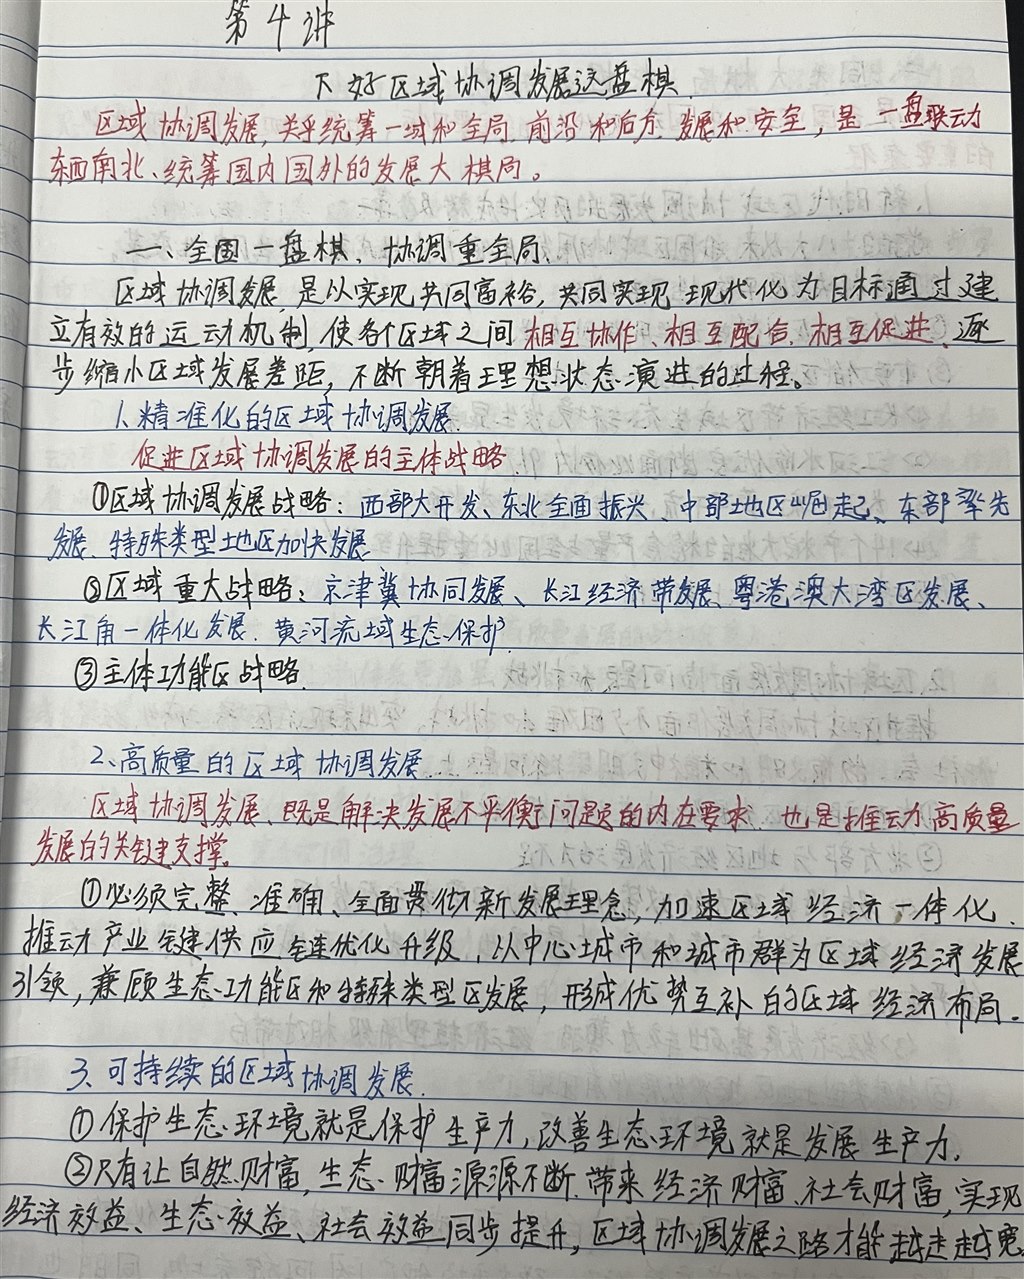 第4讲
下好区域协调发展这盘棋
区域协调发展,关乎统筹一域和全局、前沿和后方、发展和安全,是一盘联动
东西南北、统筹国内国外的发展大棋局。
一、全国一盘棋、协调重全局、
区域协调发展,是以实现共同富裕,共同实现现代化为目标通过建
立有效的运动机制,使各个区域之间相互协作、相互配合、相互促进、逐
步缩小区域发展差距,不断朝着理想状态演进的过程。
1、精准化的区域协调发展.
促进区域协调发展的主体战略.
①区域协调发展战略:西部大开发、东北全面振兴、中部地区崛起、东部率先
发展、特殊类型地区加快发展
②区域重大战略:京津冀协同发展、长江经济带发展、粤港澳大湾区发展、
长江角一体化发展.黄河流域生态保护.
③主体功能区战略.
2、高质量的区域协调发展.
区域协调发展、既是解决发展不平衡问题的内在要求.也是推动高质量
发展的关键支撑。
①必须完整、准确、全面贯彻新发展理念,加速区域经济一体化、
推动产业链供应链优化升级,以中心城市和城市群为区域经济发展
引领,兼顾生态功能区和特殊类型区发展,形成优势互补的区域经济布局。
3、可持续的区域协调发展.
①保护生态环境就是保护生产力,改善生态环境就是发展生产力.
②只有让自然财富,生态财富源源不断带来经济财富、社会财富,实现
经济效益、生态效益、社会效益同步提升,区域协调发展之路才能越走越宽。